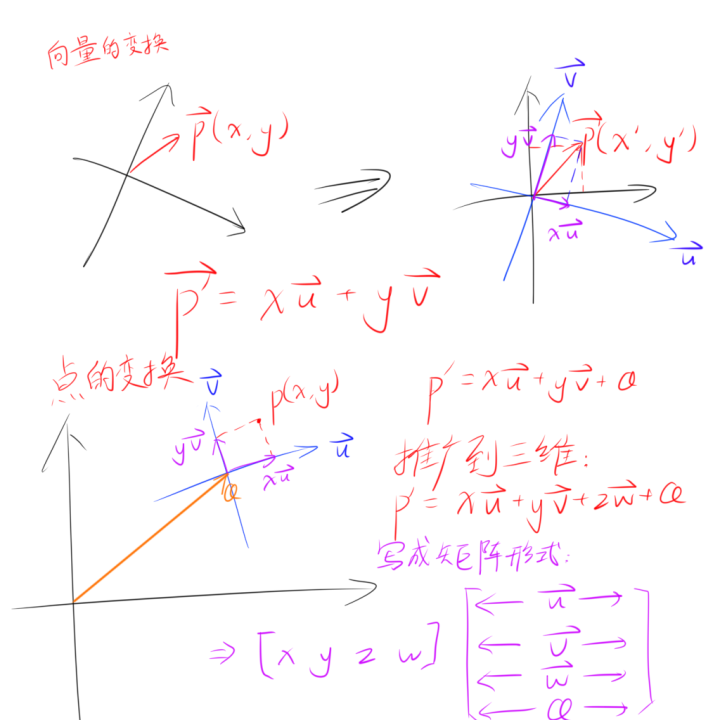 向量的变换
p⃗(x,y)
v⃗
yv⃗
p⃗(x′,y′)
xu⃗
u⃗
p⃗′ = xu⃗ + yv⃗
点的变换
v⃗
p(x,y)
yv⃗
u⃗
xu⃗
Q
p′ = xu⃗ + yv⃗ + Q
推广到三维:
p′ = xu⃗ + yv⃗ + zw⃗ + Q
写成矩阵形式:
⇒ [x y z w] [← u⃗ →
← v⃗ →
← w⃗ →
← Q →]